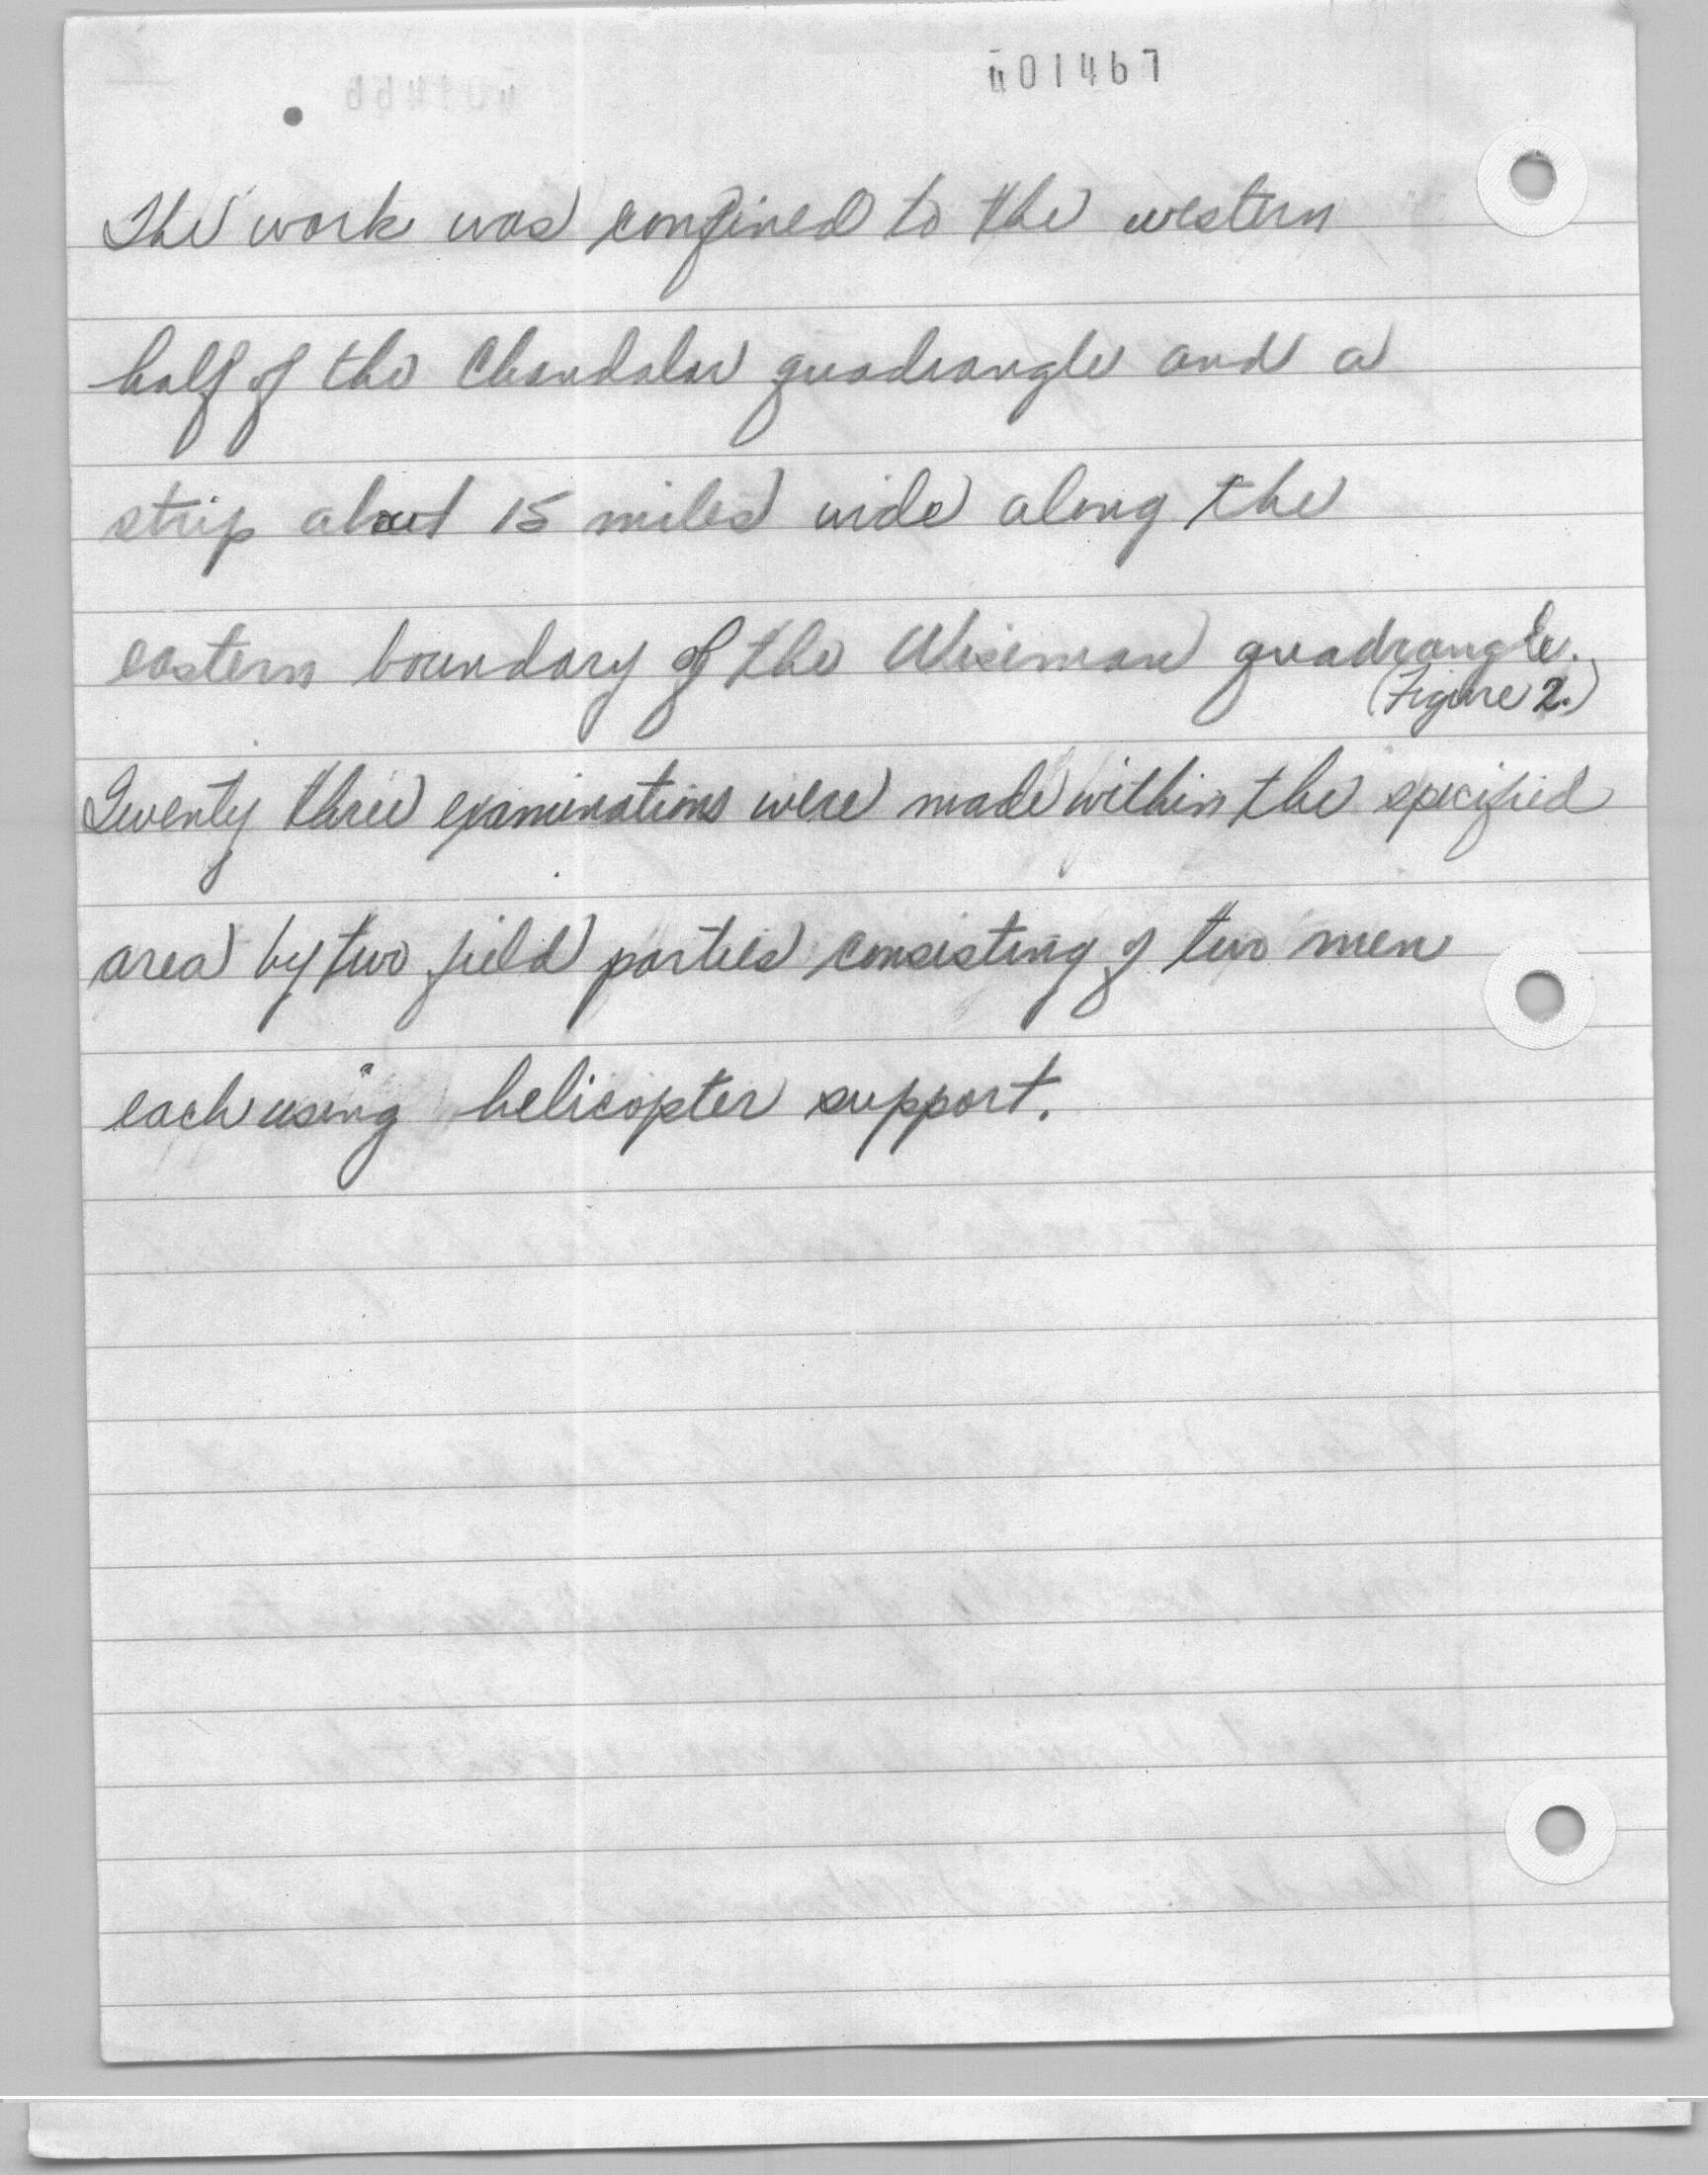 401467
The work was confined to the western
half of the Chandalar quadrangle and a
strip about 15 miles wide along the
eastern boundary of the Wiseman quadrangle.
(Figure 2.)
Twenty three examinations were made within the specified
area by two field parties consisting of two men
each using helicopter support.